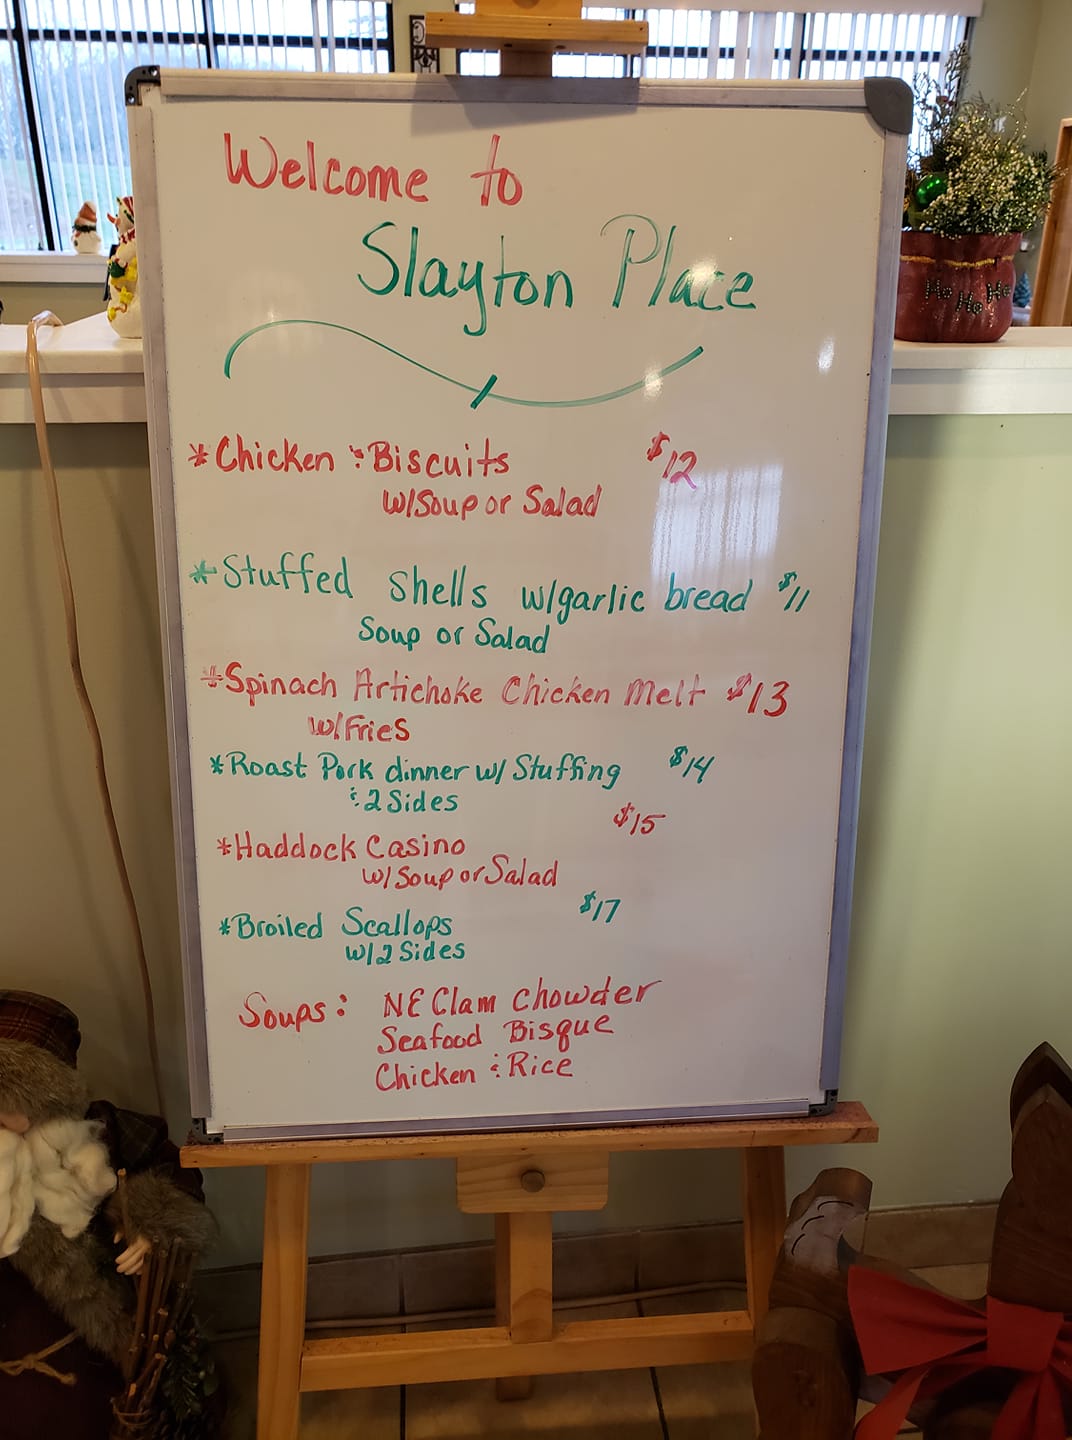 Welcome to
Slayton Place
*Chicken & Biscuits $12
w/Soup or Salad
*Stuffed Shells w/garlic bread $11
Soup or Salad
*Spinach Artichoke Chicken Melt $13
w/Fries
*Roast Pork dinner w/ Stuffing $14
& 2 Sides
*Haddock Casino $15
w/Soup or Salad
*Broiled Scallops $17
w/2 Sides
Soups: NE Clam Chowder
Seafood Bisque
Chicken & Rice
Ho Ho Ho